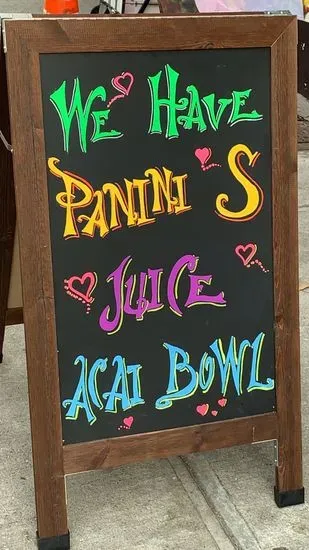 We Have
Panini S
Juice
Acai Bowl